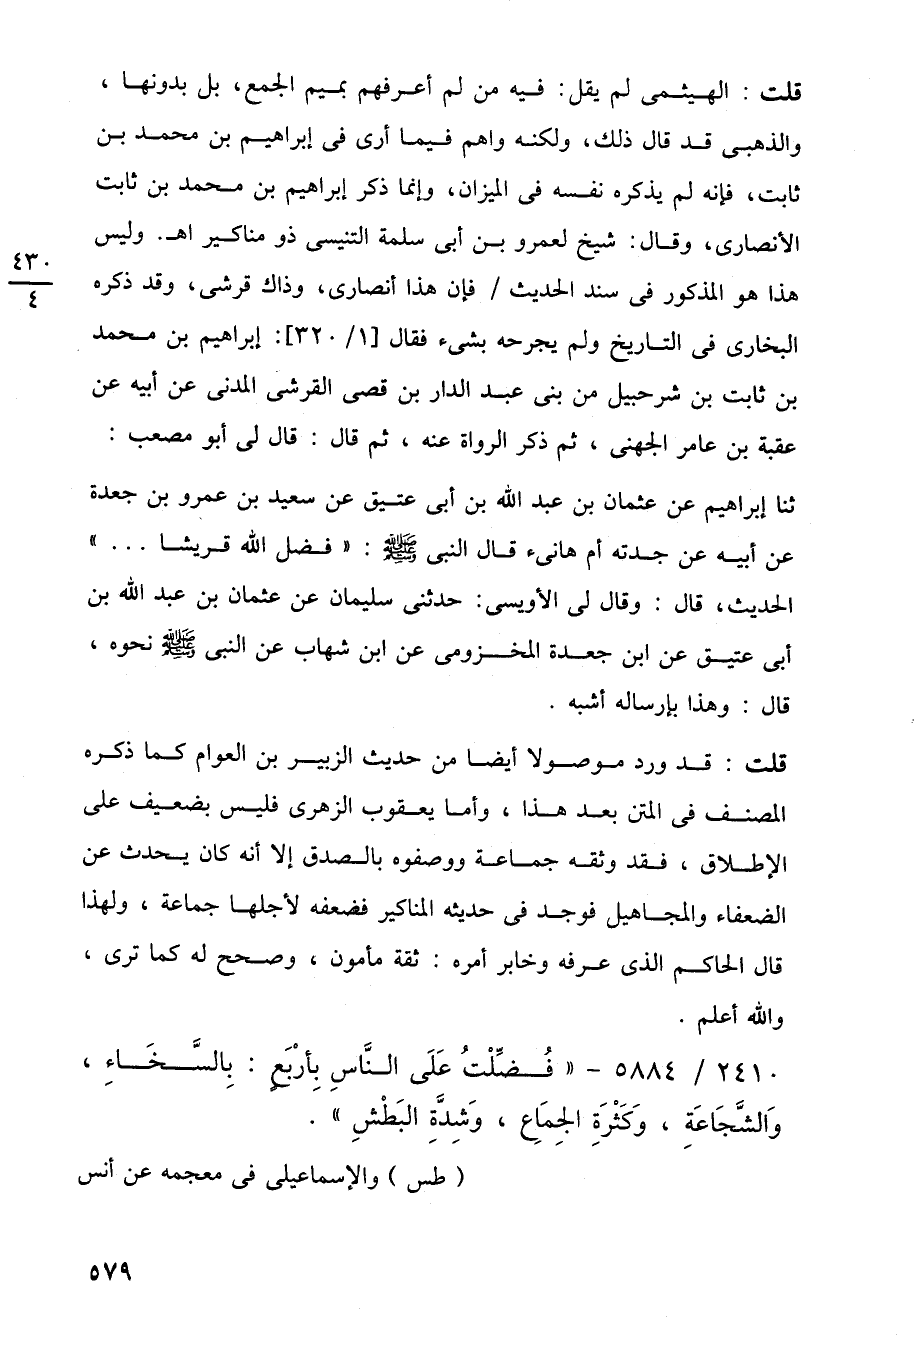 قلت : الهيثمى لم يقل : فيه من لم أعرفهم بميم الجمع ، بل بدونها ،
والذهبى قد قال ذلك ، ولكنه واهم فيما أرى فى إبراهيم بن محمد بن
ثابت ، فإنه لم يذكره نفسه فى الميزان ، وإنما ذكر إبراهيم بن محمد بن ثابت
الأنصارى ، وقال : شيخ لعمرو بن أبى سلمة التنيسى ذو مناكير اهـ. وليس
٤٣٠
٤
هذا هو المذكور فى سند الحديث / فإن هذا أنصارى ، وذاك قرشى ، وقد ذكره
البخارى فى التاريخ ولم يجرحه بشىء فقال [١/ ٣٢٠] : إبراهيم بن محمد
بن ثابت بن شرحبيل من بنى عبد الدار بن قصى القرشى المدنى عن أبيه عن
عقبة بن عامر الجهنى ، ثم ذكر الرواة عنه ، ثم قال : قال لى أبو مصعب :
ثنا إبراهيم عن عثمان بن عبد الله بن أبى عتيق عن سعيد بن عمرو بن جعدة
عن أبيه عن جدته أم هانىء قال النبى ﷺ : « فضل الله قريشا ... »
الحديث ، قال : وقال لى الأويسى : حدثنى سليمان عن عثمان بن عبد الله بن
أبى عتيق عن ابن جعدة المخزومى عن ابن شهاب عن النبى ﷺ نحوه ،
قال : وهذا بإرساله أشبه .
قلت : قد ورد موصولا أيضا من حديث الزبير بن العوام كما ذكره
المصنف فى المتن بعد هذا ، وأما يعقوب الزهرى فليس بضعيف على
الإطلاق ، فقد وثقه جماعة ووصفوه بالصدق إلا أنه كان يحدث عن
الضعفاء والمجاهيل فوجد فى حديثه المناكير فضعفه لأجلها جماعة ، ولهذا
قال الحاكم الذى عرفه وخابر أمره : ثقة مأمون ، وصحح له كما ترى ،
والله أعلم .
٢٤١٠ / ٥٨٨٤ - « فُضِّلْتُ عَلَى النَّاسِ بِأَرْبَعٍ : بِالسَّخَاءِ ،
وَالشَّجَاعَةِ ، وَكَثْرَةِ الجِمَاعِ ، وَشِدَّةِ البَطْشِ » .
( طس ) والإسماعيلى فى معجمه عن أنس
٥٧٩